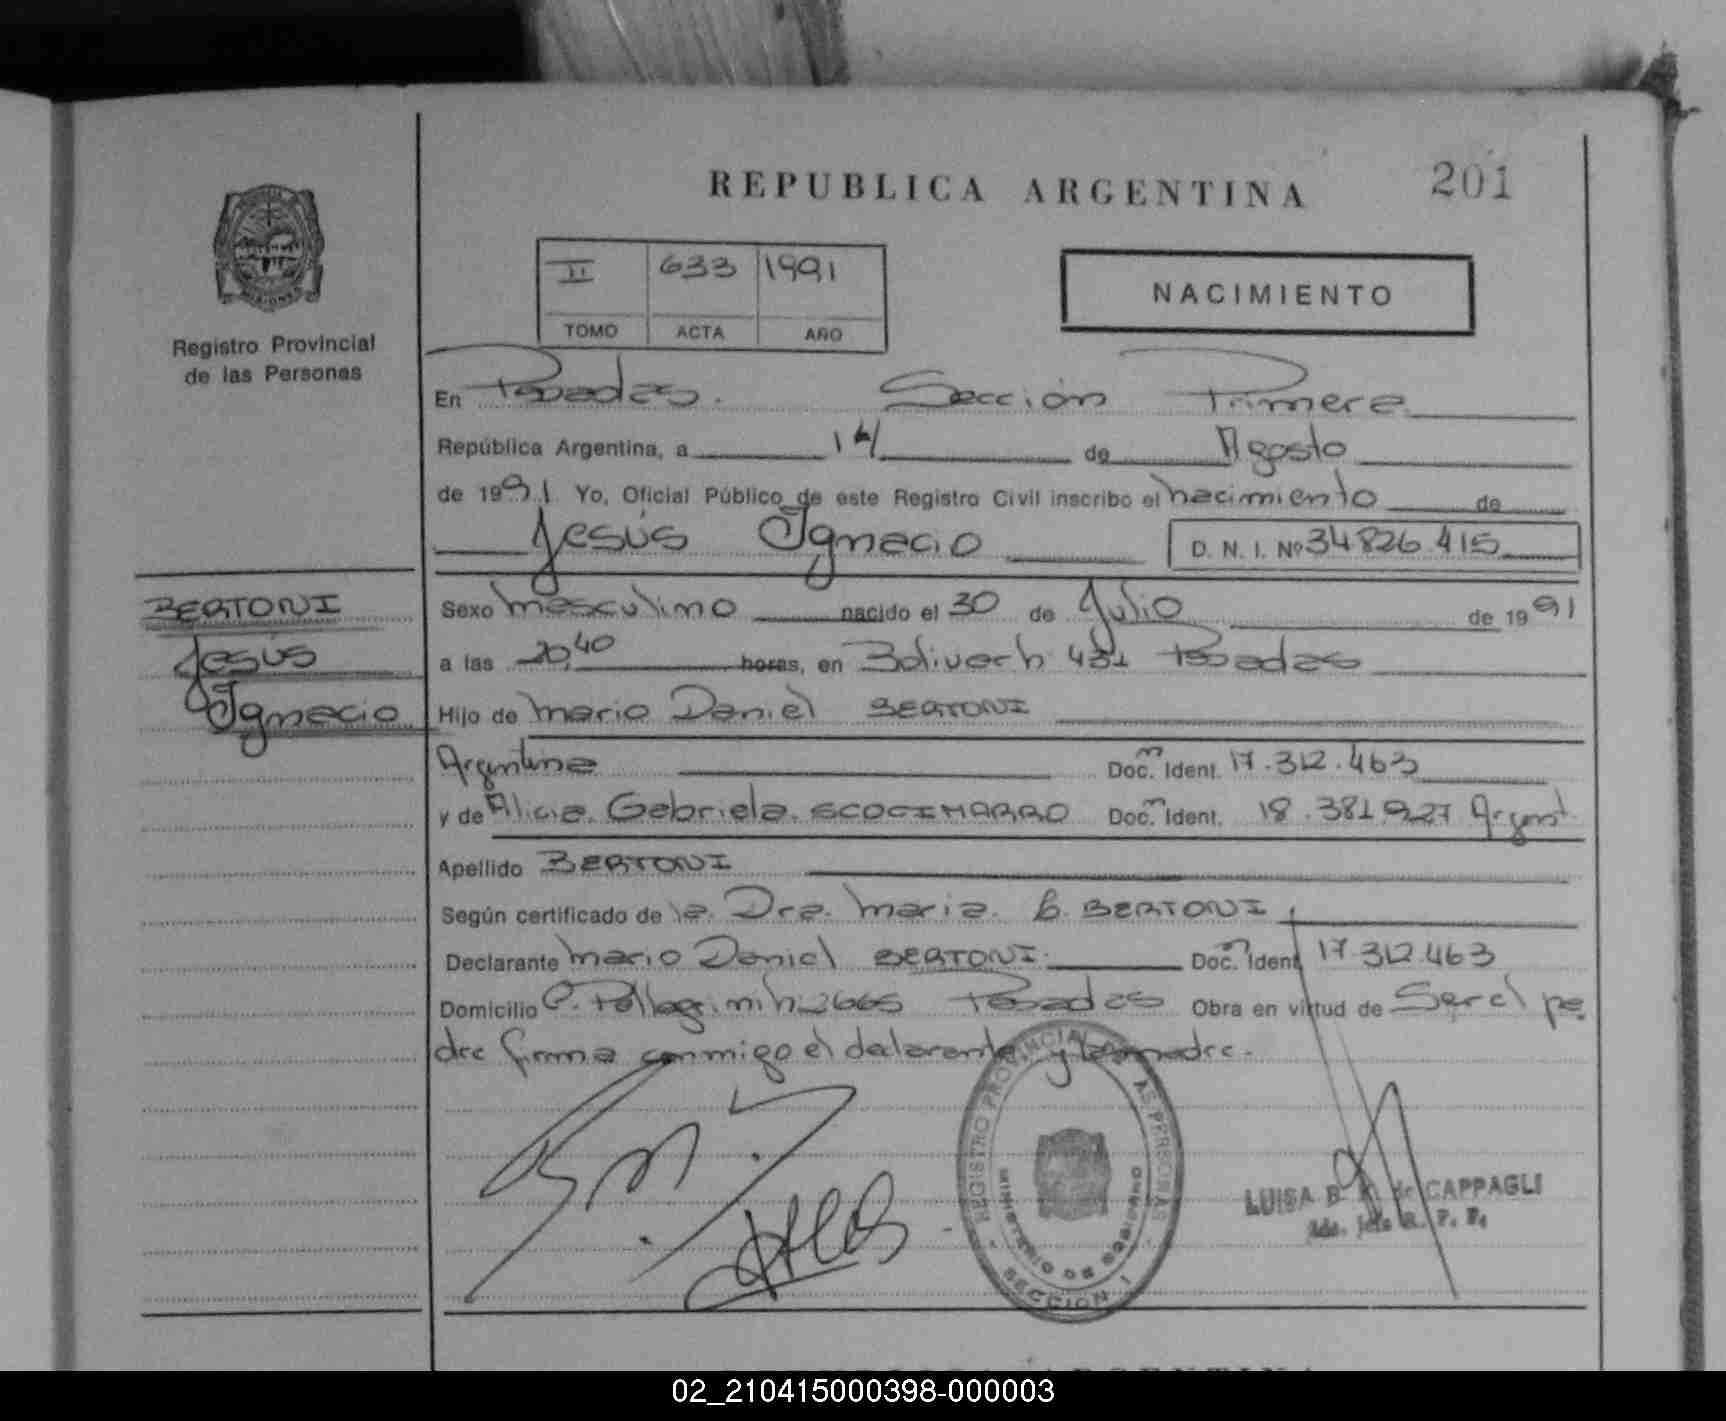 REPUBLICA ARGENTINA
201
II 633 1991
TOMO ACTA AÑO
NACIMIENTO
MISIONES
Registro Provincial
de las Personas
En Posadas. Sección Primera
República Argentina, a 14 de Agosto
de 1991 Yo, Oficial Público de este Registro Civil inscribo el nacimiento de
Jesús Ignacio D. N. I. Nº 34826.415
BERTONI
Jesús
Ignacio
Sexo masculino nacido el 30 de Julio de 1991
a las 20,40 horas, en Bolivar 431 Posadas
Hijo de Mario Daniel BERTONI
Argentina Doc. Ident. 17.312.463
y de Alicia Gabriela SCOCIMARRO Doc. Ident. 18.381.927 Argent.
Apellido BERTONI
Según certificado de la Dra. Maria B. BERTONI
Declarante Mario Daniel BERTONI Doc. Ident. 17.312.463
Domicilio C. Pellegrini 2665 Posadas Obra en virtud de Ser el pa
dre firma conmigo el declarante y la madre.
REGISTRO PROVINCIAL DE LAS PERSONAS
MINISTERIO DE GOBIERNO
SECCION I
LUISA B. de CAPPAGLI
02_210415000398-000003